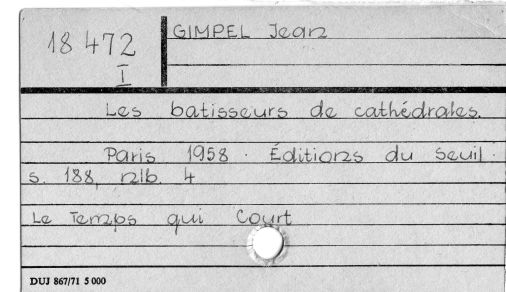 18 472
I
GIMPEL Jean
Les batisseurs de cathédrales.
Paris 1958. Éditions du Seuil.
s. 188, nlb. 4
Le Temps qui Court
DUJ 867/71 5 000